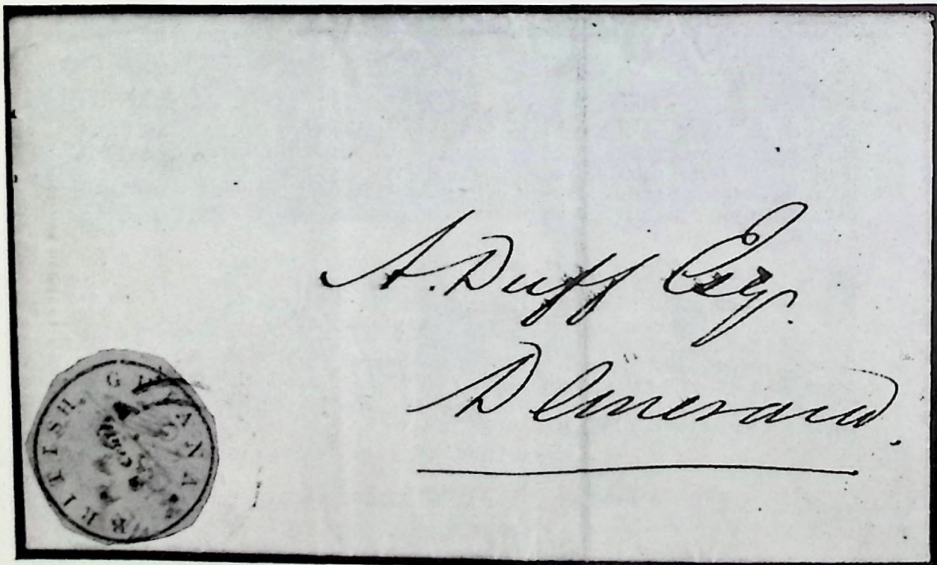 A. Duff Esq.
Demerara.
BRITISH GUIANA